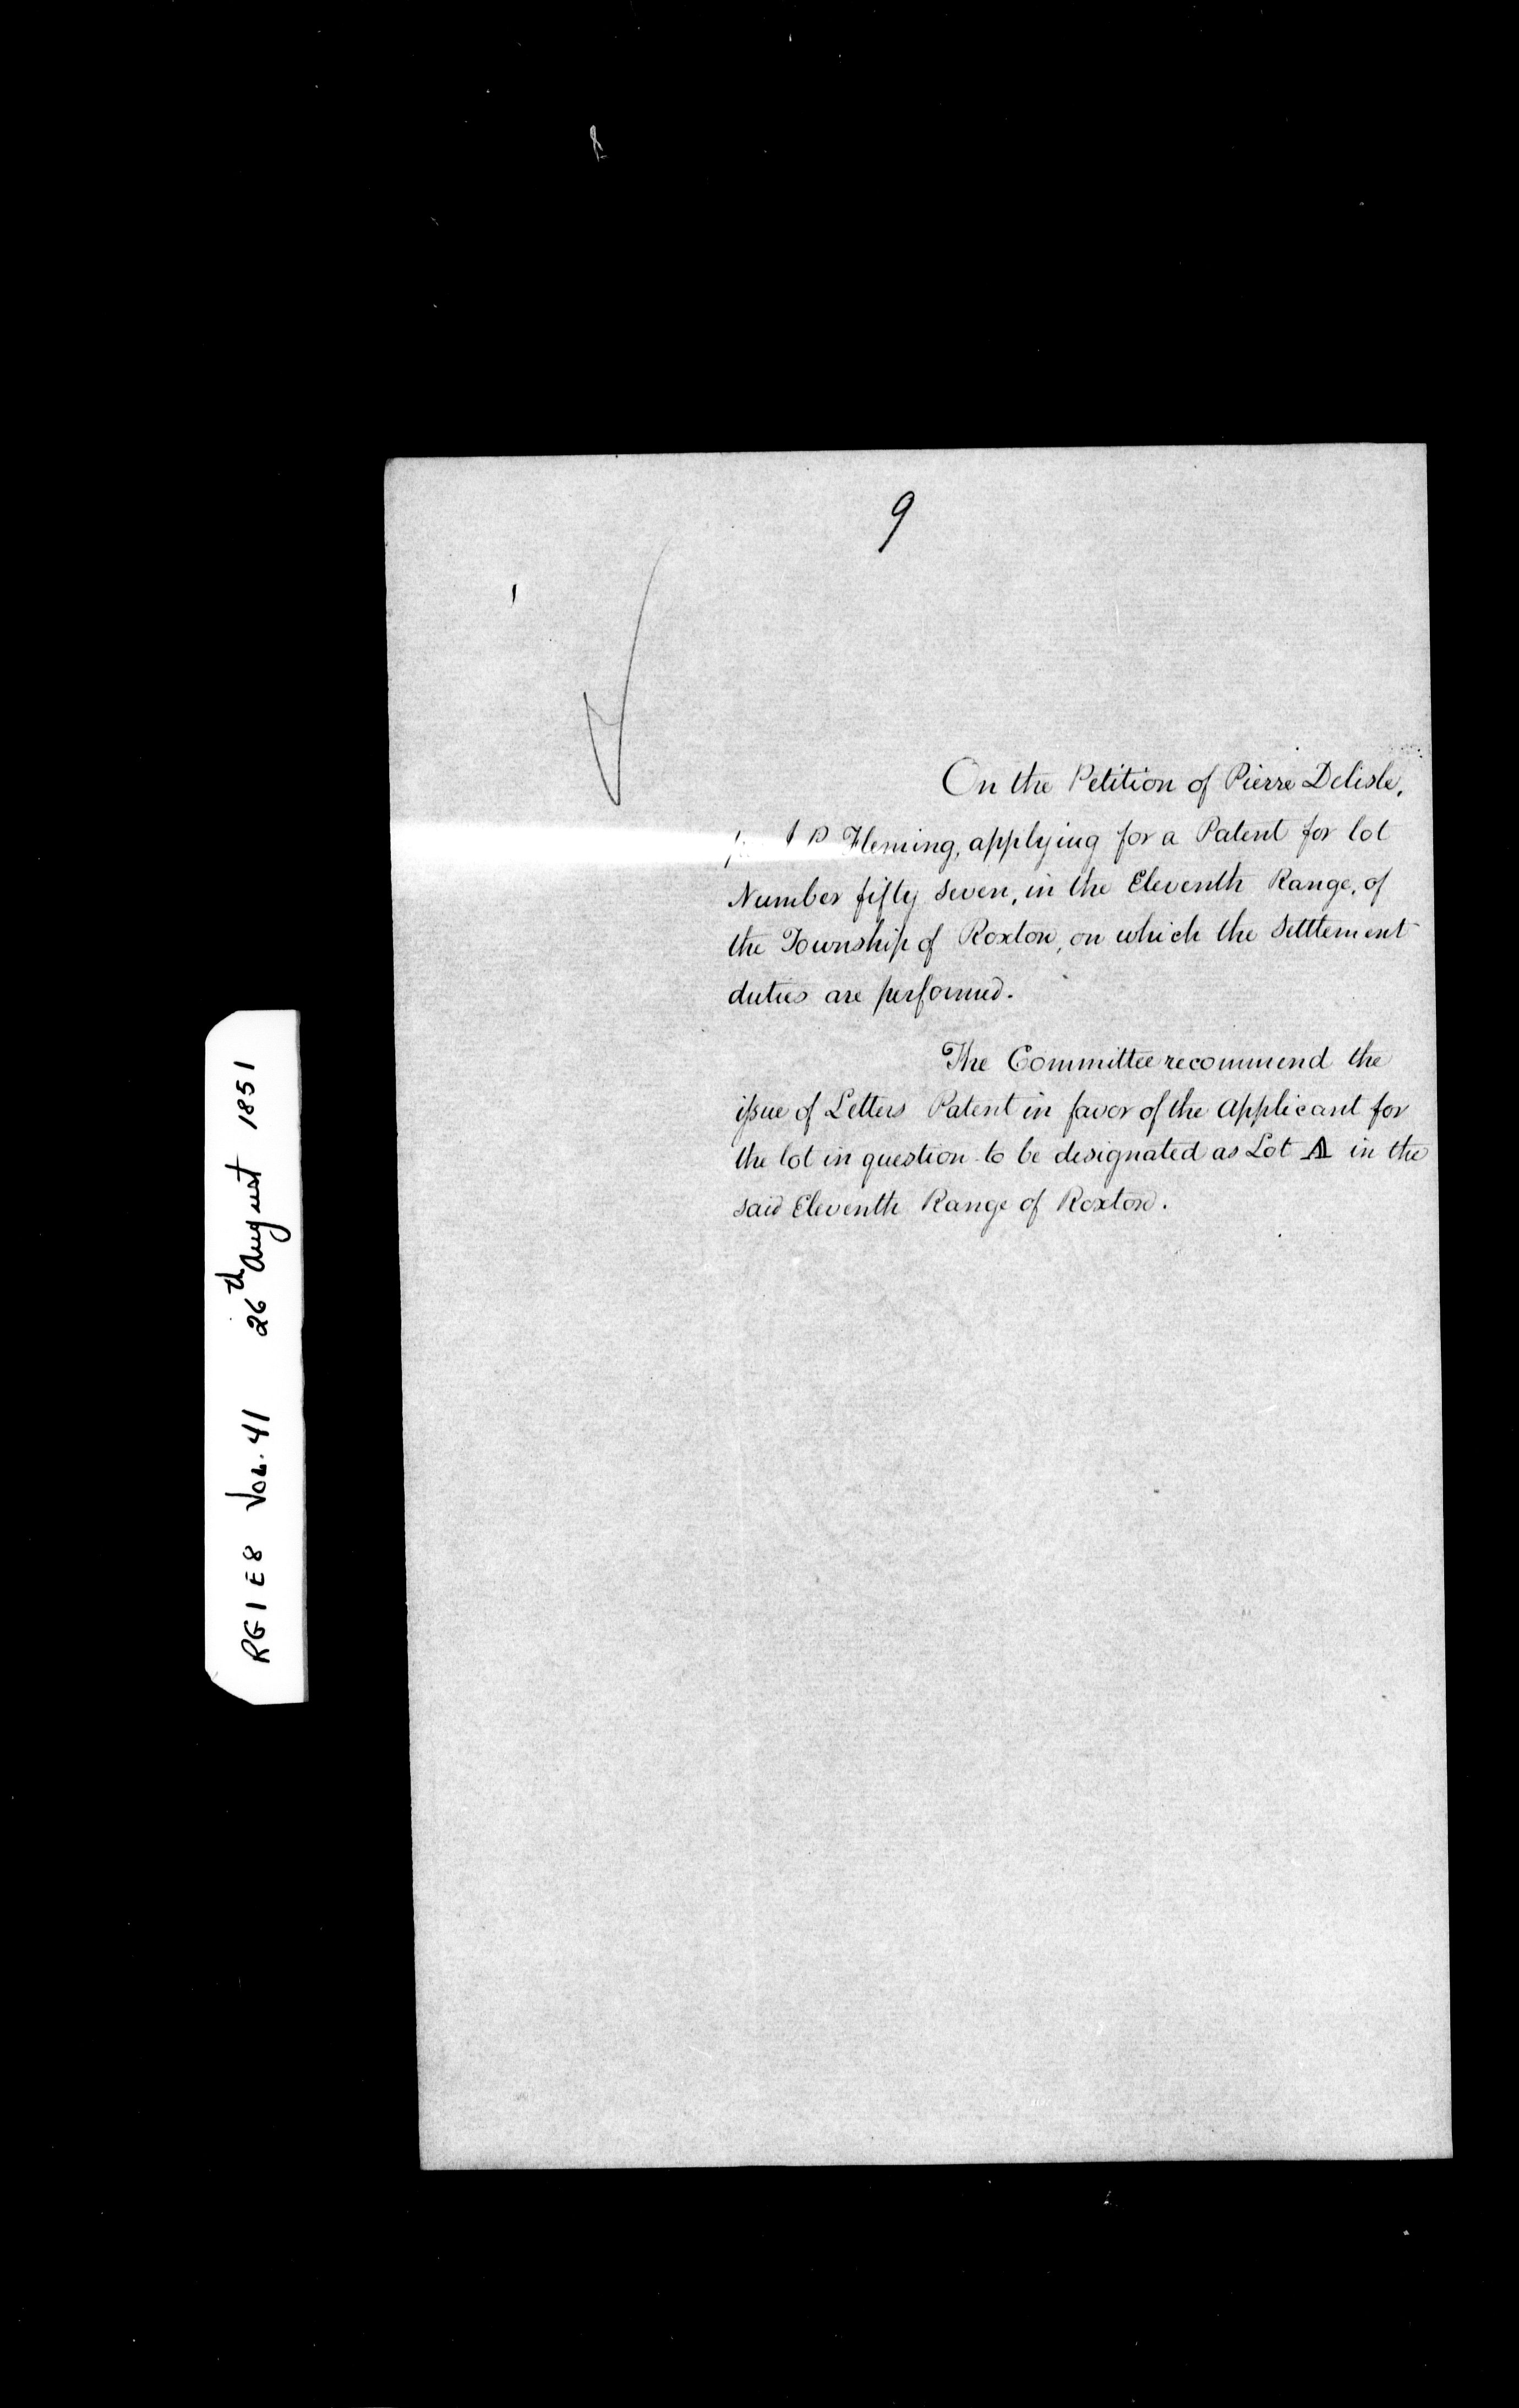 9
On the Petition of Pierre Delisle,
Fleming, applying for a Patent for lot
Number fifty seven, in the Eleventh Range, of
the Township of Roxton, on which the Settlement
duties are performed.
The Committee recommend the
issue of Letters Patent in favor of the Applicant for
the lot in question to be designated as Lot A in the
said Eleventh Range of Roxton.
RG1 E8 VOL. 41 26th August 1851